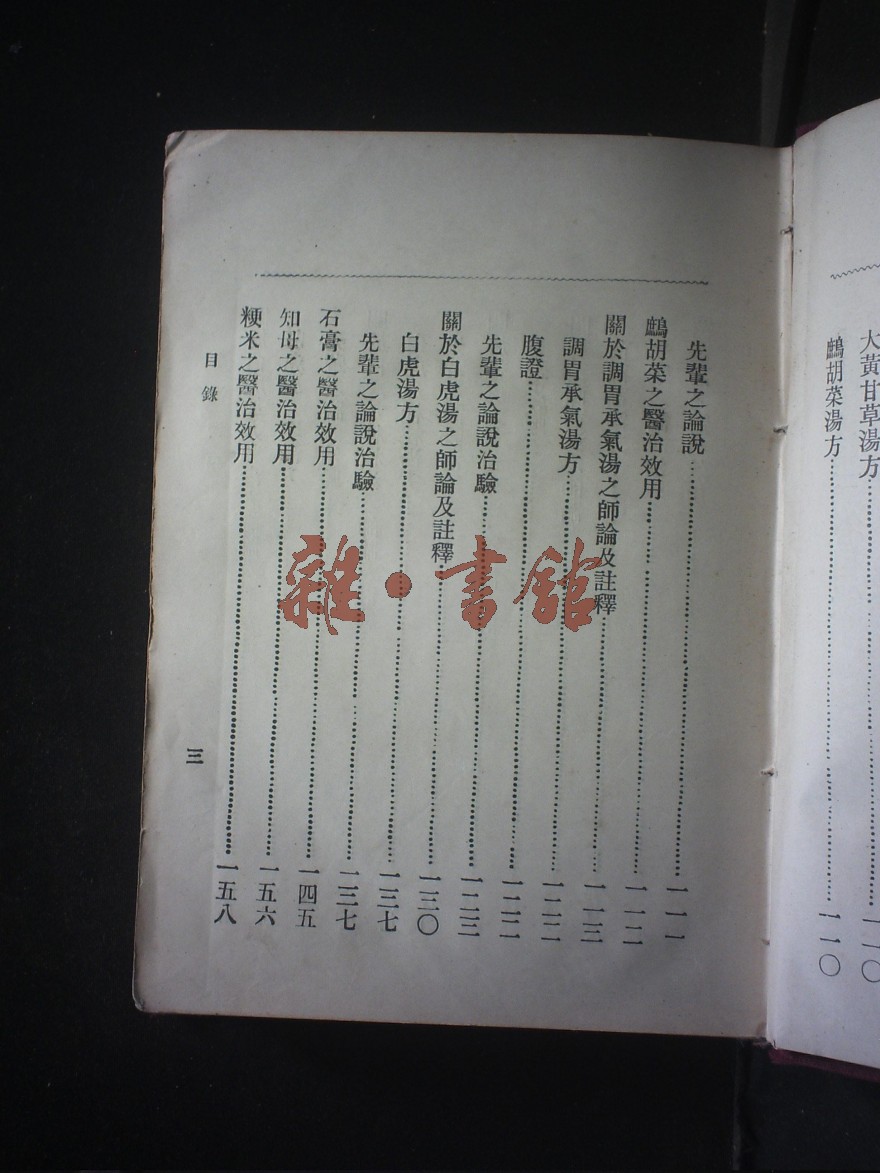 大黃甘草湯方……一一〇
鷓胡菜湯方……一一〇
先輩之論說……一一一
鷓胡菜之醫治效用……一一二
關於調胃承氣湯之師論及註釋……一一三
調胃承氣湯方……一二二
腹證……一二二
先輩之論說治驗……一二三
關於白虎湯之師論及註釋……一三〇
白虎湯方……一三七
先輩之論說治驗……一三七
石膏之醫治效用……一四五
知母之醫治效用……一五六
粳米之醫治效用……一五八
目錄
三
雜·書館